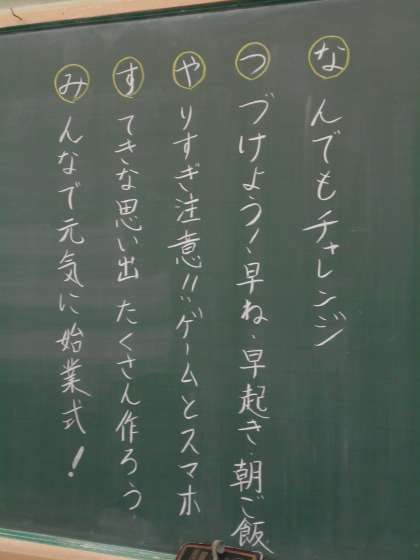 なんでもチャレンジ
つづけよう!早ね・早起き・朝ご飯
やりすぎ注意!!ゲームとスマホ
すてきな思い出 たくさん作ろう
みんなで元気に始業式!